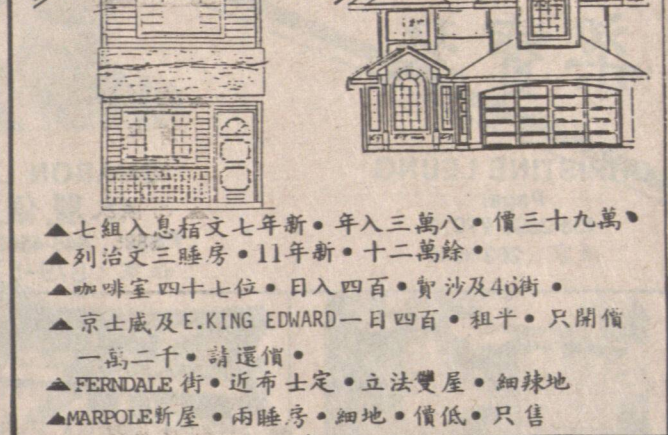 ▲七組入息柏文七年新•年入三萬八•價三十九萬•
▲列治文三睡房•11年新•十二萬餘•
▲咖啡室四十七位•日入四百•沙及40街•
▲京士威及E.KING EDWARD一日四百•租半•只開價
一萬二千•請還價•
▲FERNDALE街•近布士定•立法雙屋•細辣地
▲MARPOLE新屋•兩睡房•細地•價低•只售